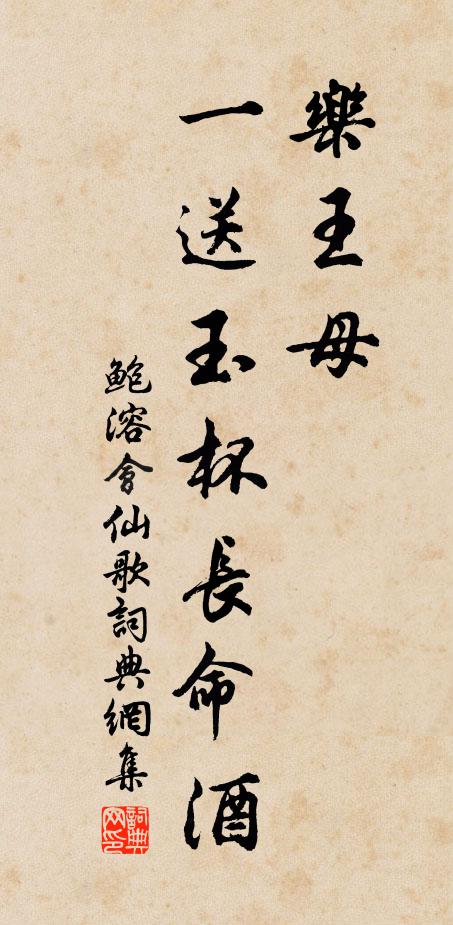 樂王母
一送玉杯長命酒
鲍溶會仙歌詞典網集
詞典
网印